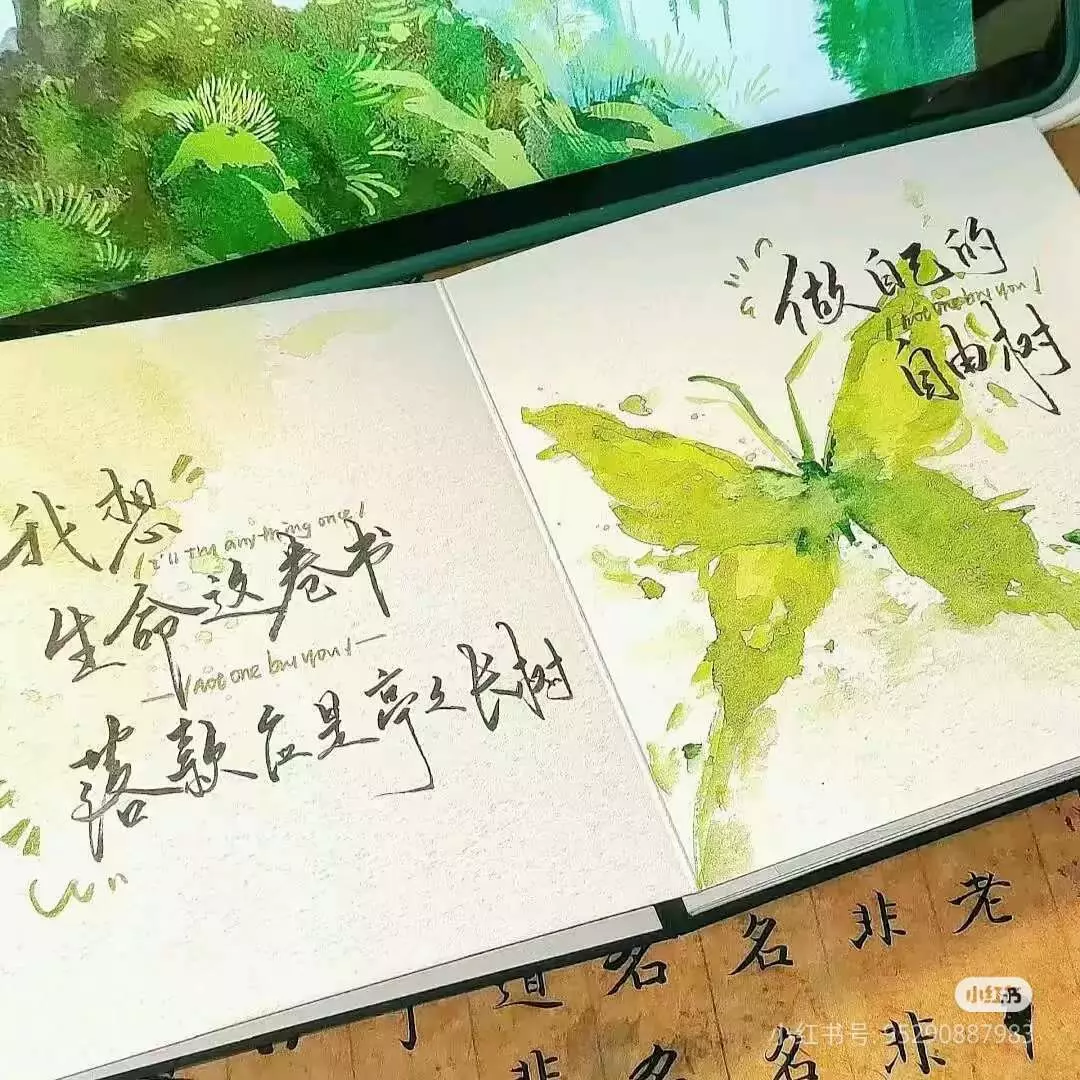 我想
I'll any-thing once!
生命这卷书
not one but you!
落款应是亭々长树
做自己的
not one but you!
自由树
道名名非老
非名名非
小红书
小红书号 95290887983